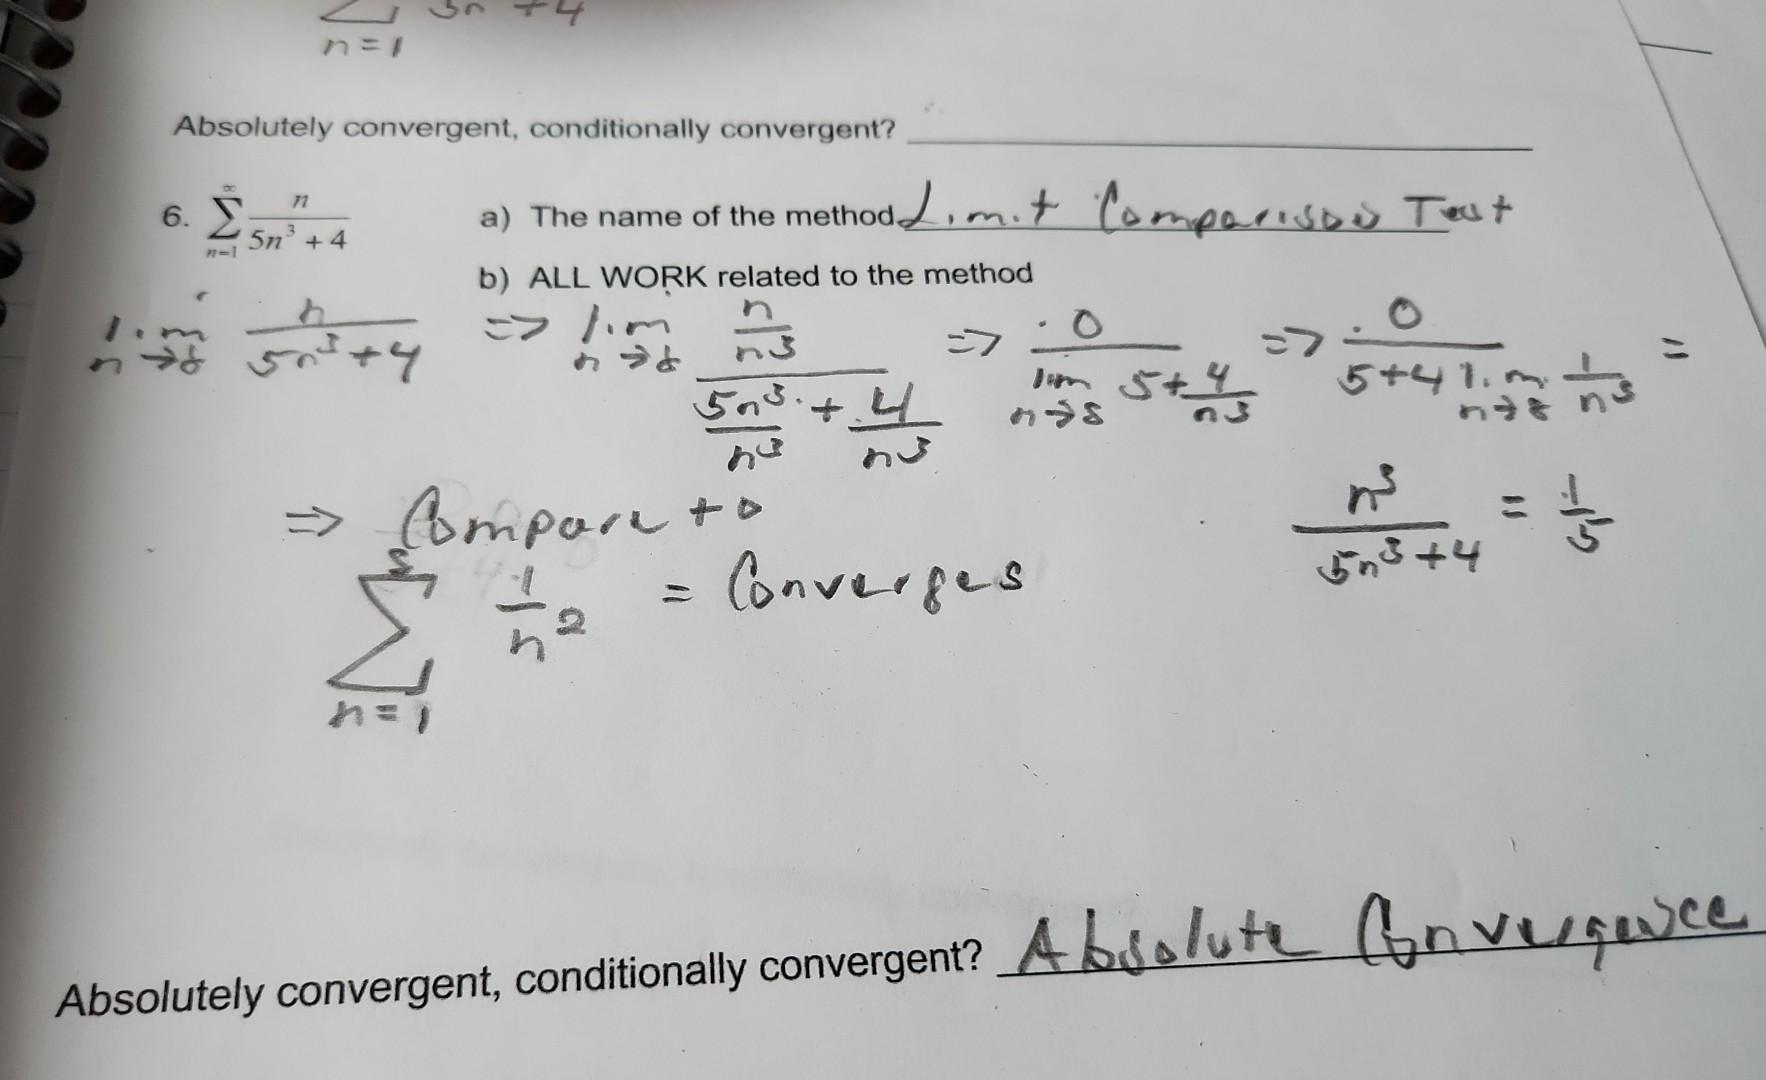 ∑ 5n + 4
n=1
Absolutely convergent, conditionally convergent?
6. ∞ ∑ n=1 n / 5n³ + 4 a) The name of the method Limit Comparison Test
b) ALL WORK related to the method
lim n→∞ n / 5n³+4 => lim n→∞ n/n³ / 5n³/n³ + 4/n³ => 0 / lim n→∞ 5+4/n³ => 0 / 5+4 lim n→∞ 1/n³ =
n³ / 5n³+4 = 1/5
=> Compare to
∞ ∑ n=1 1/n² = Converges
Absolutely convergent, conditionally convergent? Absolute Convergence